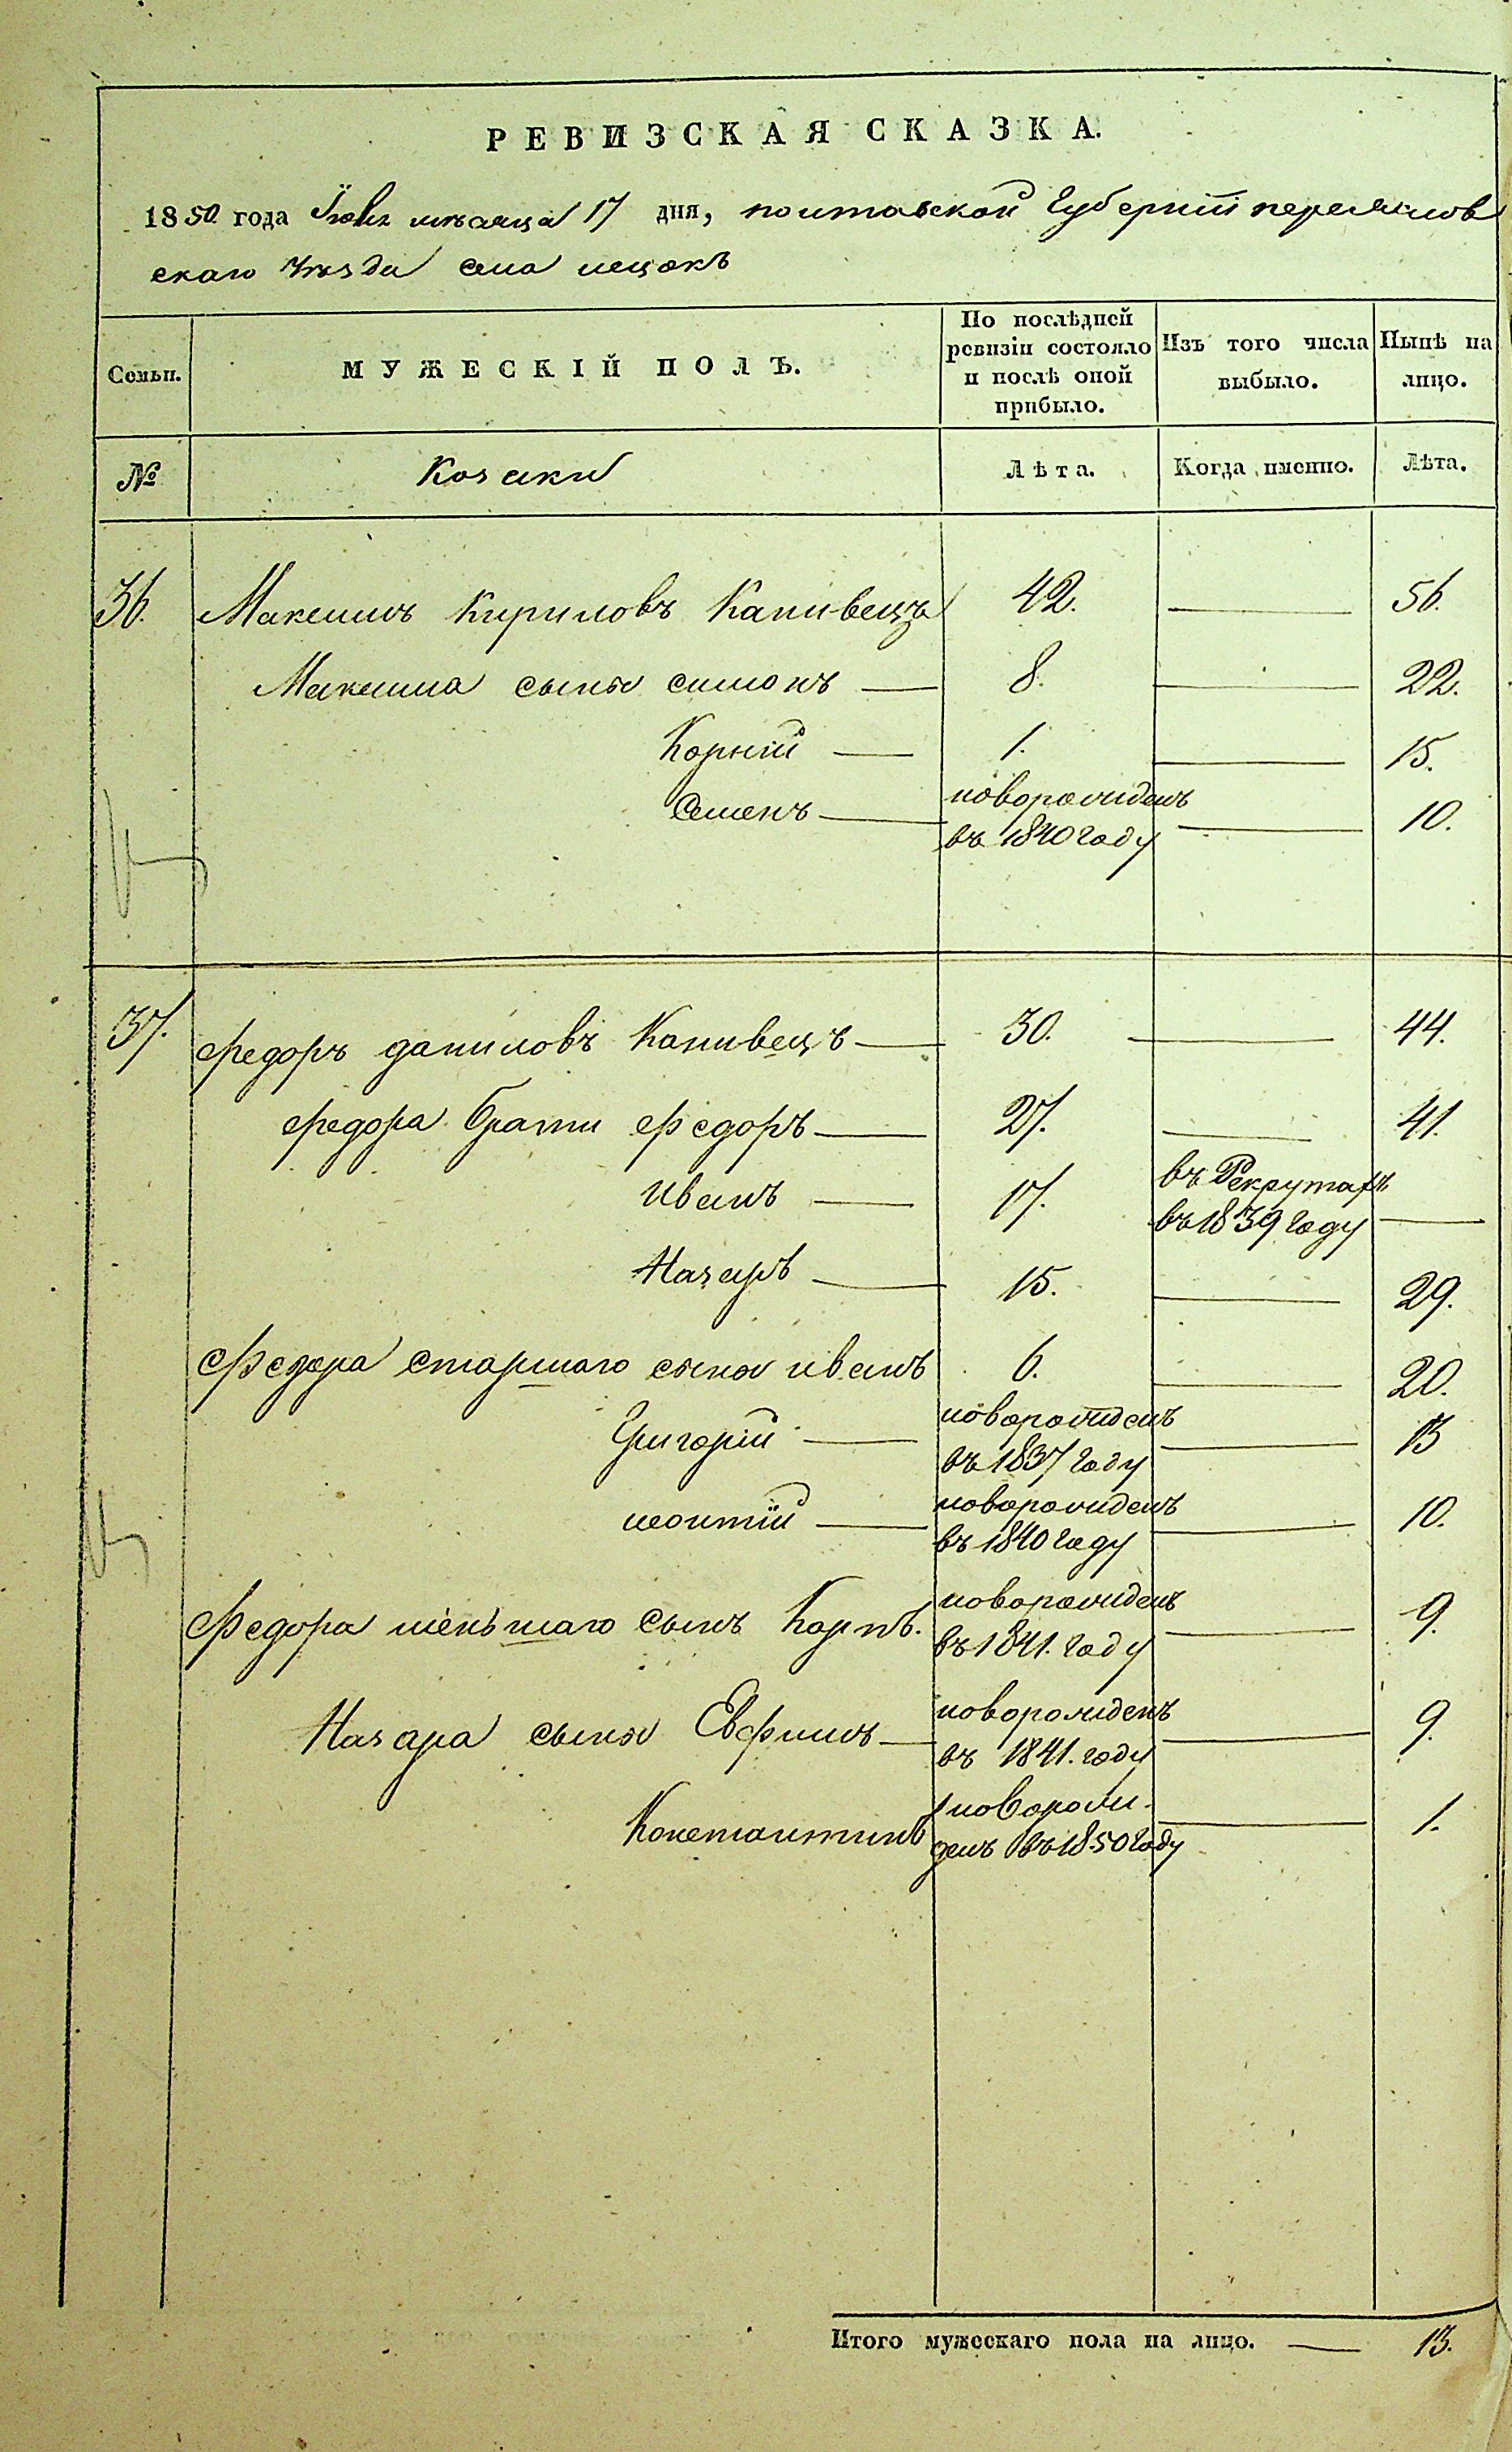 РЕВИЗСКАЯ СКАЗКА.
1850 года Іюня мѣсяца 17 дня, полтавской Губерніи переяслов
скаго Уѣзда села лецокъ
Семьи.
МУЖЕСКІЙ ПОЛЪ.
По послѣдней ревизіи состояло и послѣ оной прибыло.
Изъ того числа выбыло.
Нынѣ на лицо.
№ Козаки Лѣта. Когда именно. Лѣта.
36. Максимъ Кириловъ Канивецъ 42. — 56.
Максима сыны симонъ — 8. — 22.
Корній — 1. — 15.
Семенъ — новорожденъ
въ 1840 году — 10.
37. Федоръ даниловъ Канивецъ — 30. — 44.
Федора браты Федоръ — 27. — 41.
Иванъ — 17. въ Рекрутахъ
въ 1839 году —
Назаръ — 15. — 29.
Федора старшаго сыны иванъ 6. — 20.
Григорій — новорожденъ
въ 1837 году — 13
леонтій — новорожденъ
въ 1840 году — 10.
Федора меньшаго сынъ Карпъ. новорожденъ
въ 1841. году — 9.
Назара сыны Евфимъ — новорожденъ
въ 1841. году — 9.
Константинъ новорож-
денъ въ 1850 году — 1.
Итого мужескаго пола на лицо. — 13.